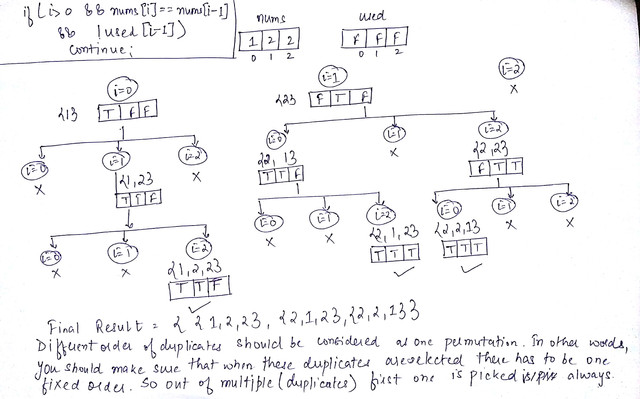 if (i>0 && nums[i]==nums[i-1]
&& !used[i-1])
continue;
nums
1 2 2
0 1 2
used
F F F
0 1 2
i=0
{1}
T F F
i=1
{2}
F T F
i=2
x
i=0
x
i=1
{1,2}
T T F
i=2
x
i=0
{2,1}
T T F
i=1
x
i=2
{2,2}
F T T
i=0
x
i=1
x
i=2
{1,2,2}
T T F
i=0
x
i=1
x
i=2
{2,1,2}
T T T
i=0
{2,2,1}
T T T
i=1
x
i=2
x
Final Result = { {1,2,2}, {2,1,2}, {2,2,1}}
Different order of duplicates should be considered as one permutation. In other words,
you should make sure that when these duplicates are selected there has to be one
fixed order. So out of multiple (duplicates) first one is picked always.